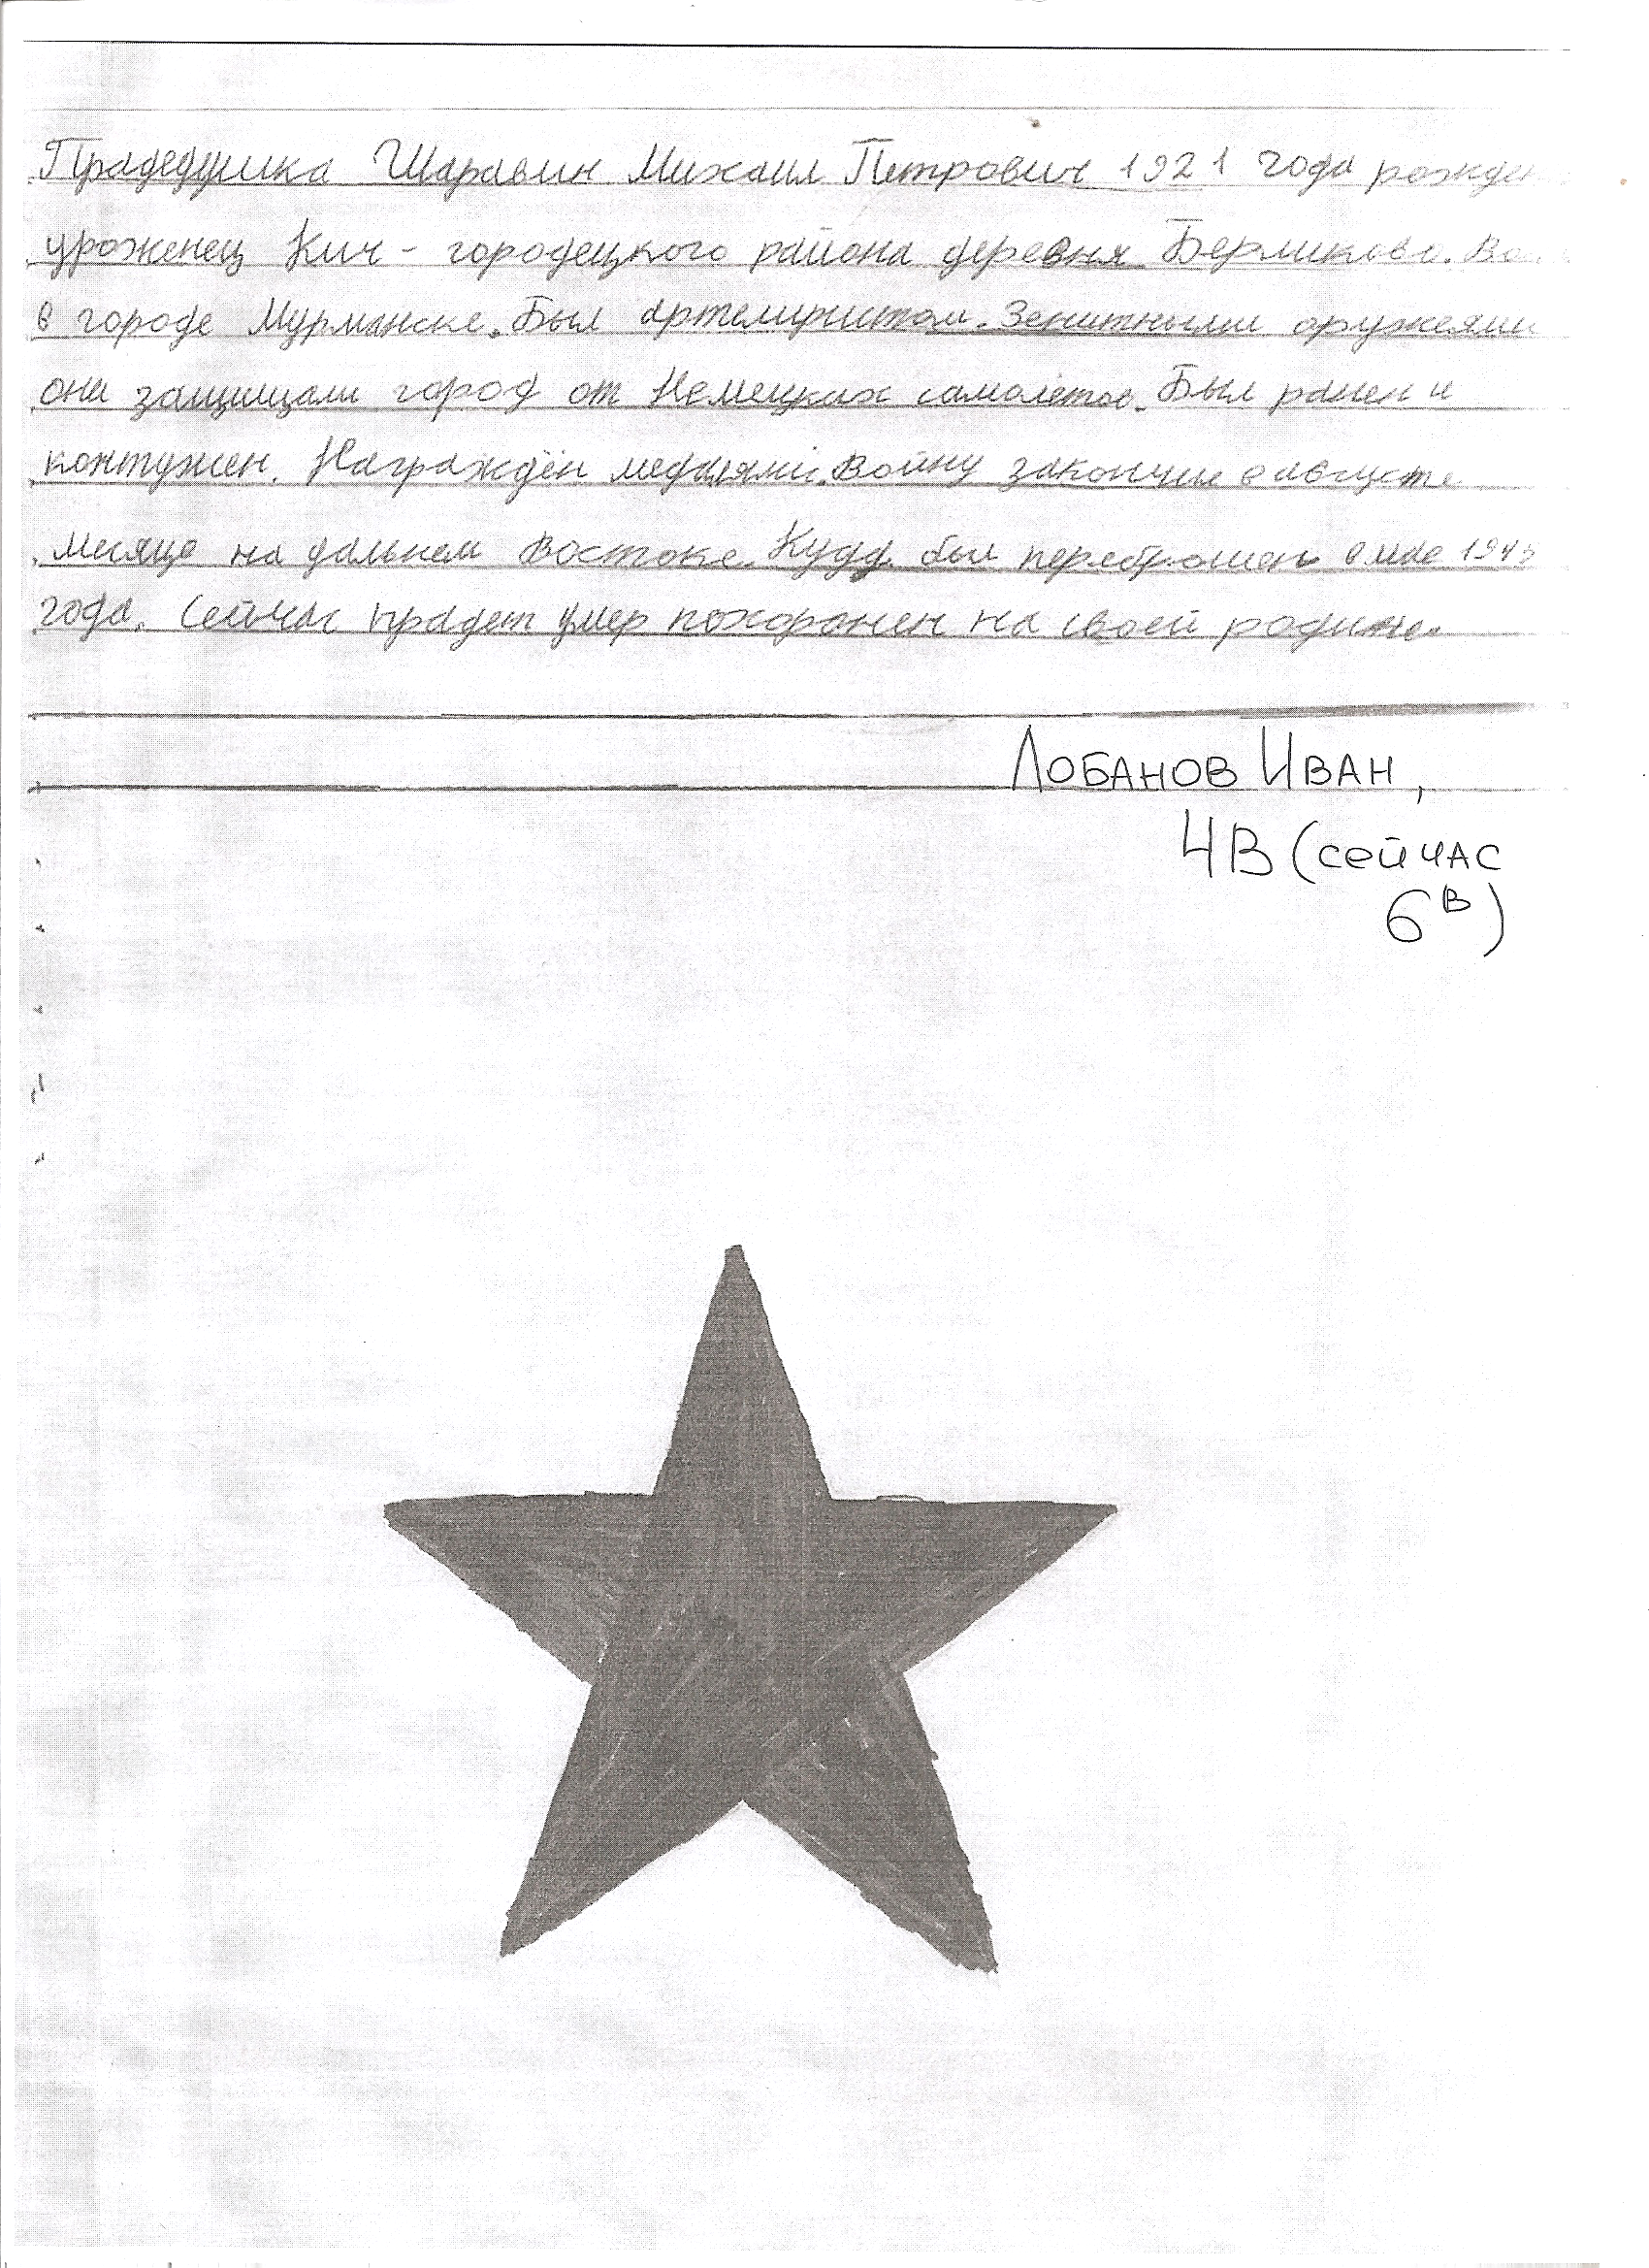 Прадедушка Шаравин Михаил Петрович 1921 года рожден
уроженец Кич - городецкого района деревня Бермиково. Во
в городе Мурманске. Был артелиристом. Зенитными оружеями
они защищали город от Немецких самолётов. Был ранен и
контужен. Награждён медалями. Войну закончил в августе
месяце на дальнем востоке. Куда был переброшен в мае 1945
года. Сейчас прадет умер похоранен на своей родине.
Лобанов Иван,
4В (сейчас
6В)